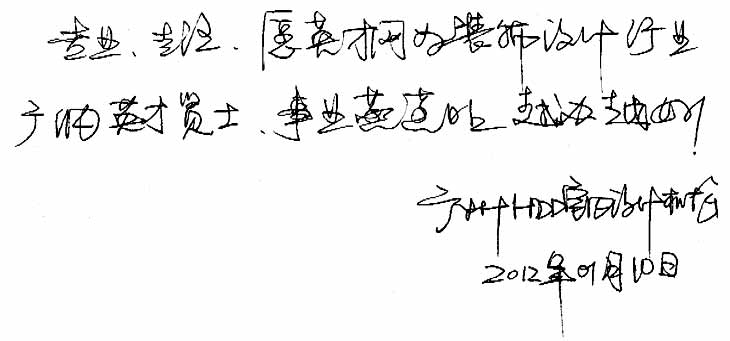 专业、专注、医英才网为装饰设计行业
广纳英才贤士、事业蒸蒸日上 越办越好!
广州HDD室内设计机构
2012年01月10日